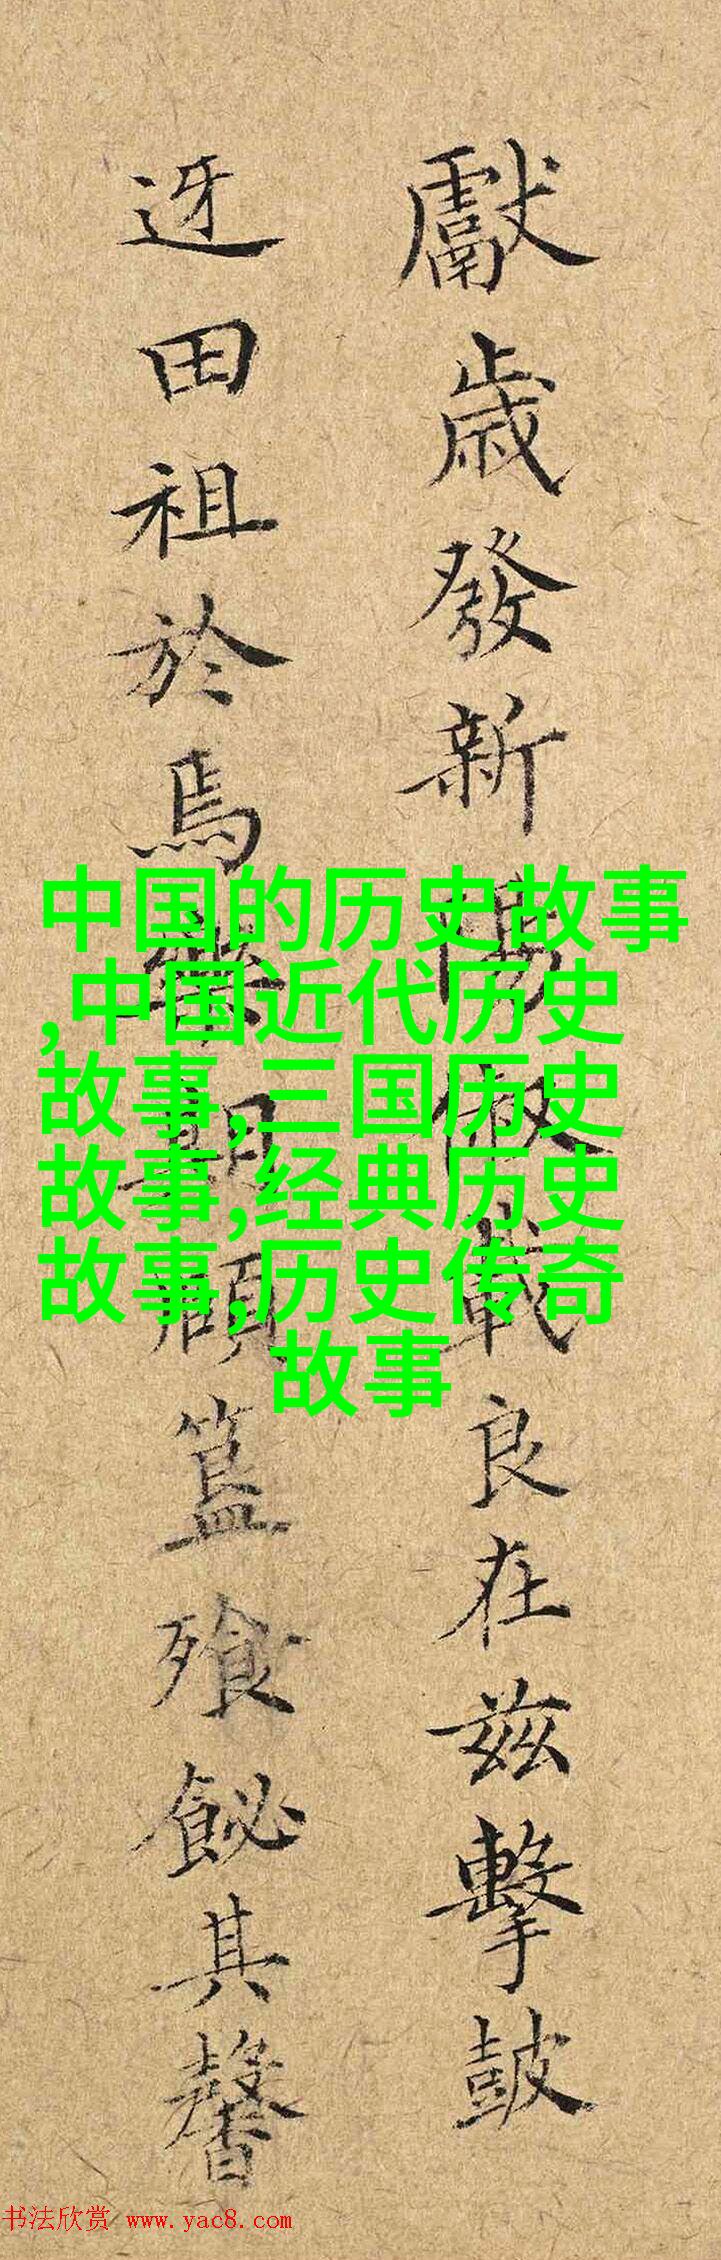 獻歲發新陽俶載良在茲擊皷
迓田祖於焉簋飱飶其馨
中国的历史故事
,中国近代历史
故事,三国历史
故事,经典历史
故事,历史传奇
故事
书法欣赏 www.yac8.com